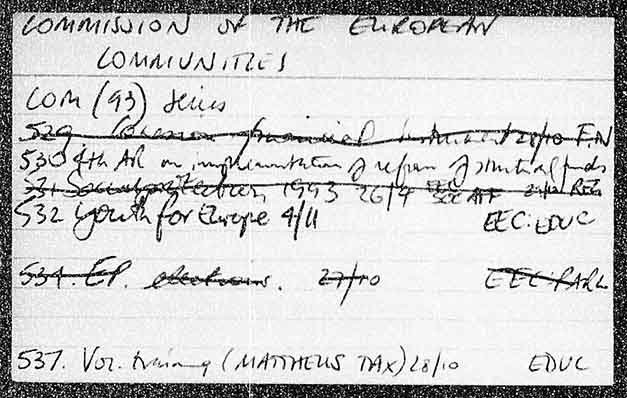 COMMISSION OF THE EUROPEAN
COMMUNITIES
COM (93) series
529 Cohesion financial instrument 28/10 FIN
530 4th AR on implementation of reform of structural funds
531 Social protection 1993 26/4 SOC AFF REG
532 Youth for Europe 4/11 EEC: EDUC
534. EP. elections. 27/10 EEC: PARL
537. Voc. training (MATTHEUS TAX) 28/10 EDUC